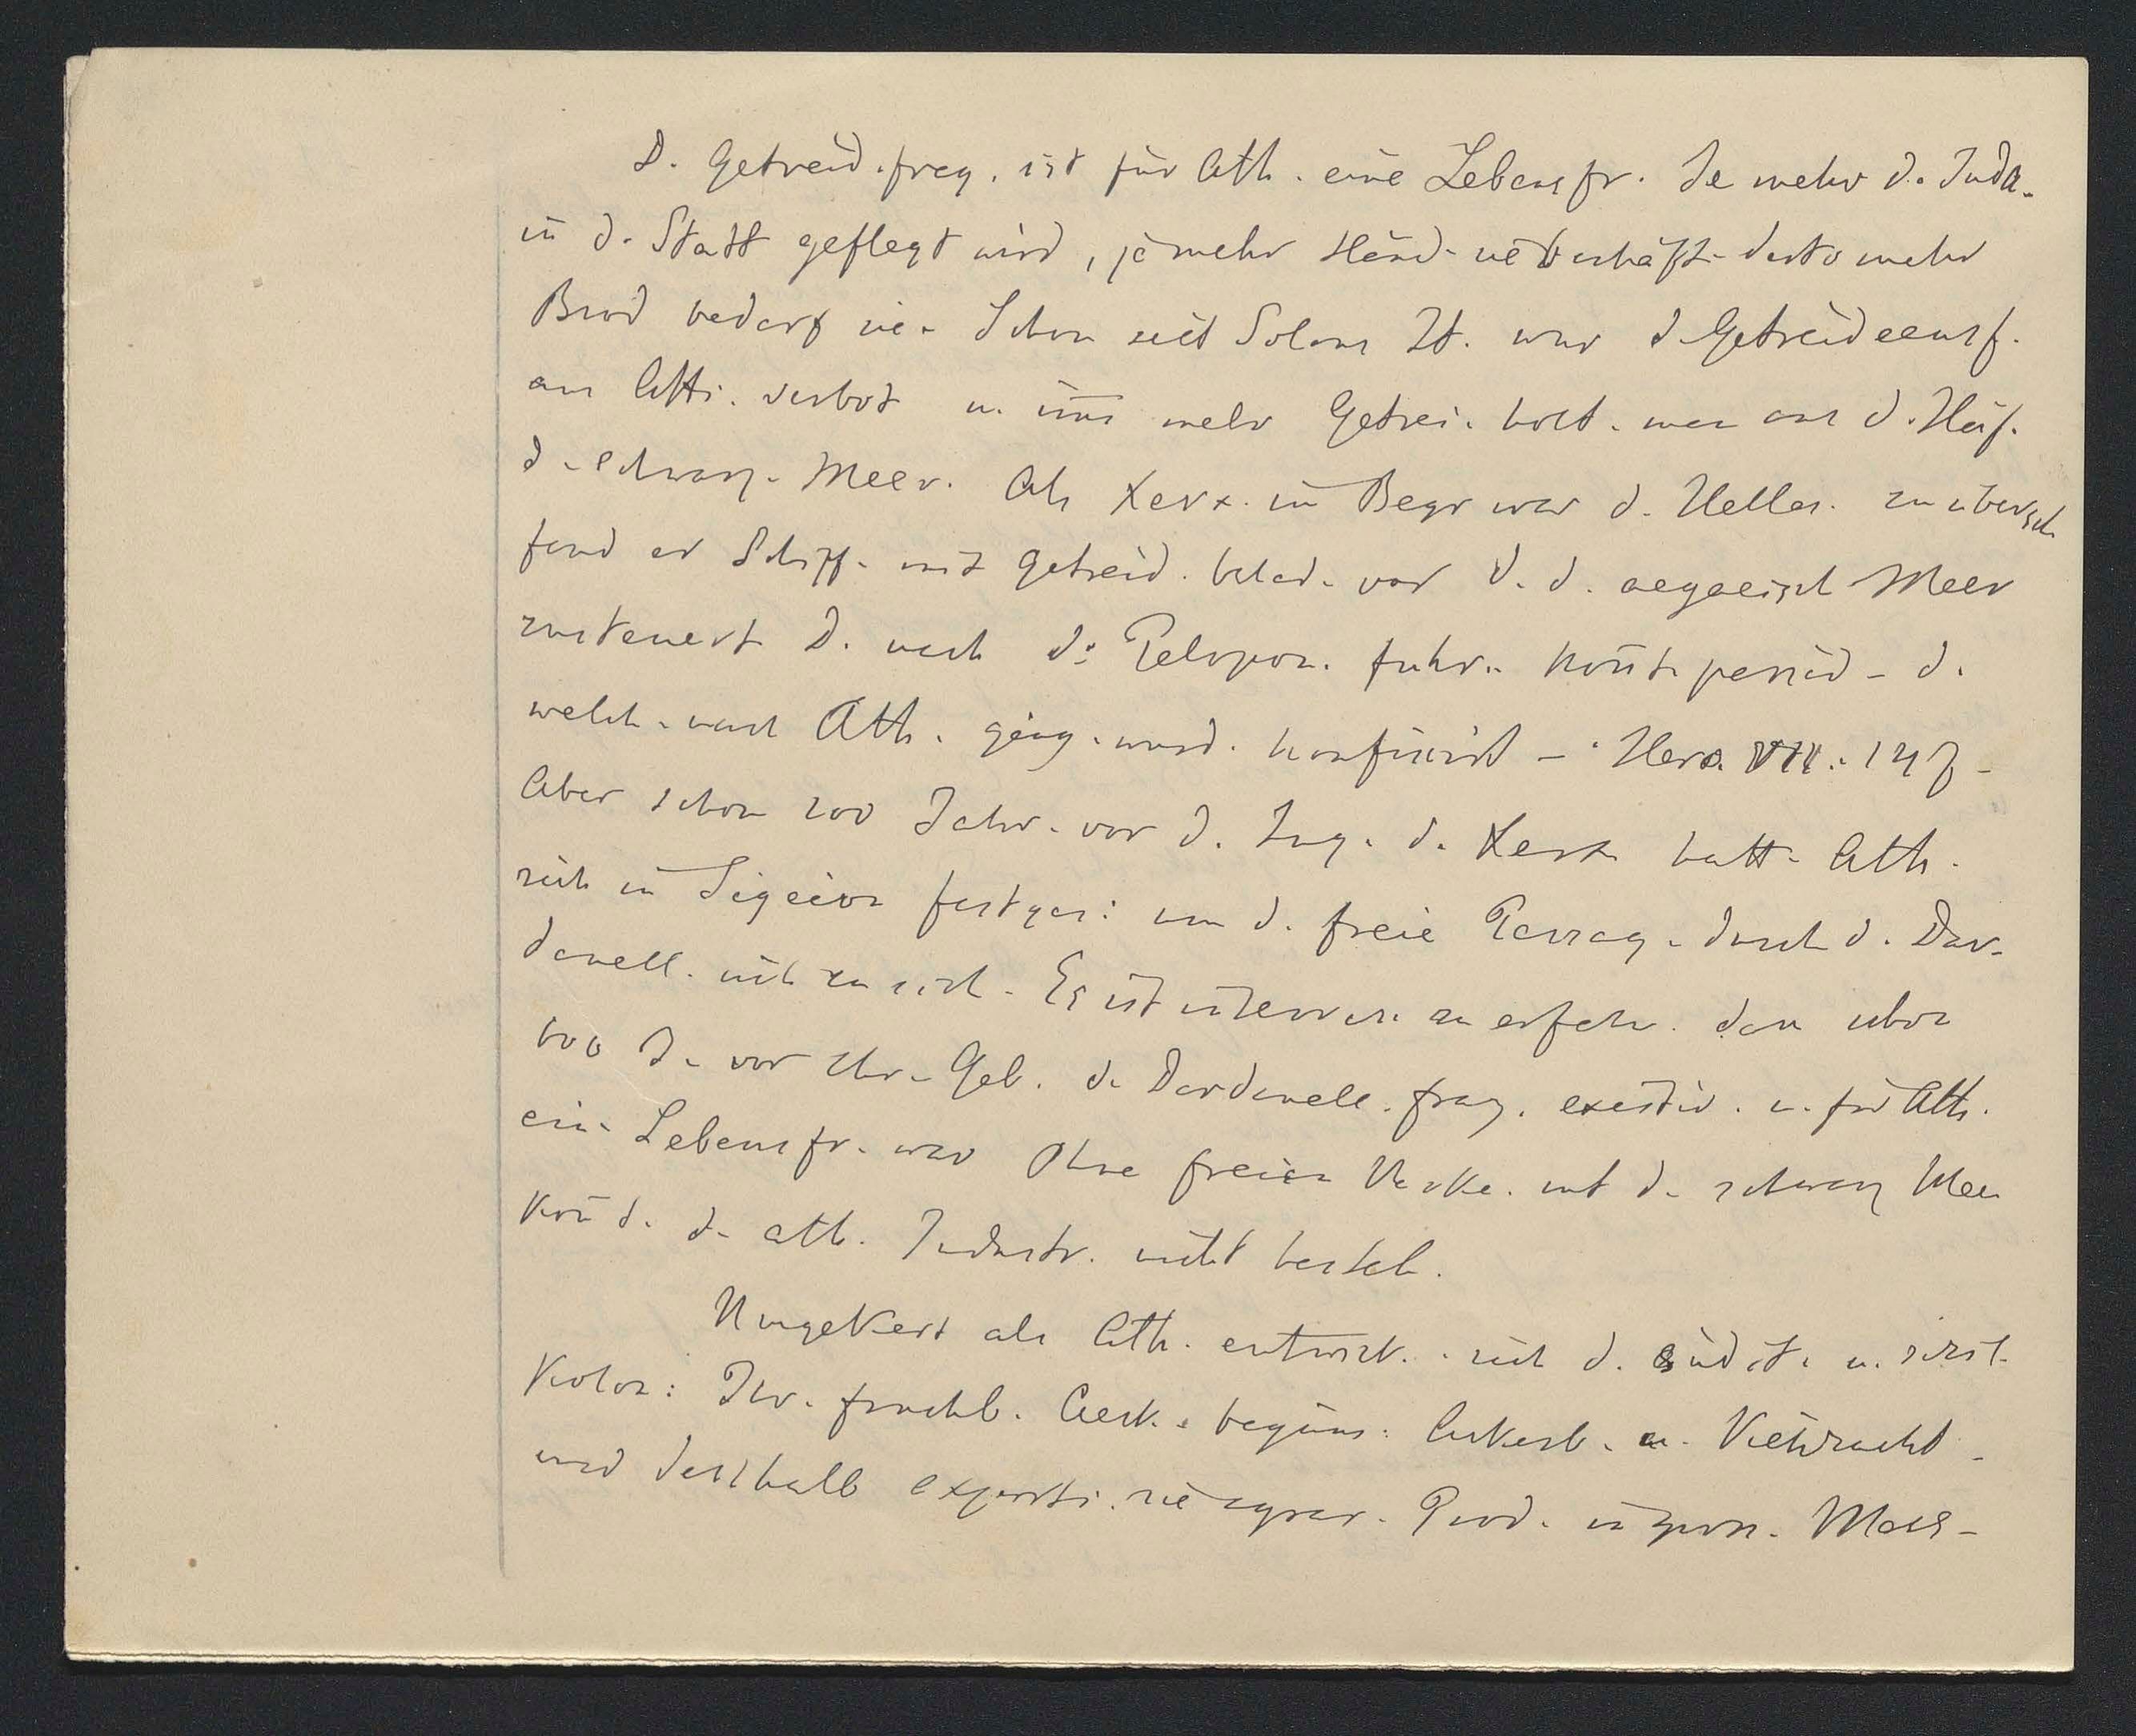 D. Getreid. frag. ist für Ath. eine Lebensfr. Je mehr d. Indu-
in d. Stadt geflegt wird, je mehr Händ. sie beschäft. desto mehr
Brod bedarf sie. Schon seit Solons Zt. war d. Getreideausf.
aus Atti. verbot u. im̄ mehr Getrei. holt. man aus d. Häf.
d. schwarz. Meer. Als Xerx. im Begr war d. Helles. zu übersch
fand er Schiff. mit Getreid. belad. vor d. d. aegaeisch Meer
zusteuert D. nach d. Pelopon. fuhr. kon̄t. passid. d.
welch. nach Ath. ging. wurd. konfiscirt – Hero. VII. 147 –
Aber schon 100 Jahr. vor d. Zug. d. Xerx hatt. Ath.
sich in Sigeion festges: um d. freie Passag. durch d. Dar-
danell. sich zu sich. Es ist interess. zu erfahr. dass schon
600 J. vor Chr. Geb. d. Dardanell. frag. existir. u. für Ath.
ein. Lebensfr. war Ohne freien Verke. mit d. schwarz Meer
kon̄t. d. ath. Industr. nicht besteh.
Umgekert als Ath. entwick. sich d. südit. u. sizil.
Kolon: Ihr. fruchtb. Aeck. begüns. Ackerb. u. Viehzucht
und desshalb exporti. sie agrar. Prod. in gross. Mass-